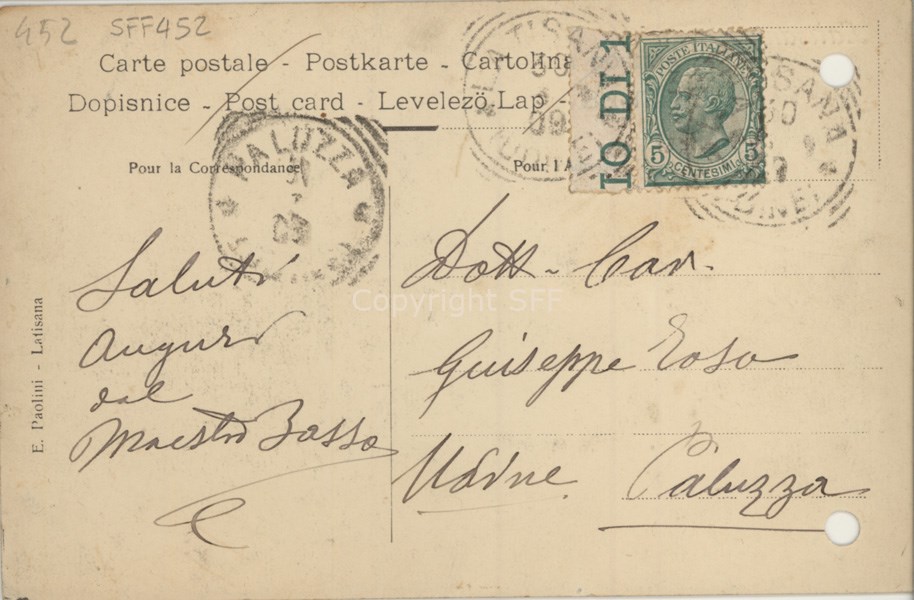 452 SFF452
Carte postale - Postkarte - Cartolina
Dopisnice - Post card - Levelező Lap -
Pour la Correspondance
Pour l'A
IO DI 1
POSTE ITALIANE
5 CENTESIMI 5
LATISANA
30
09
(UDINE)
PALUZZA
09
E. Paolini - Latisana
Saluti
Auguri
dal
Maestro Basso
Dott. Cav.
Guiseppe
Udine Paluzza
Copyright SFF